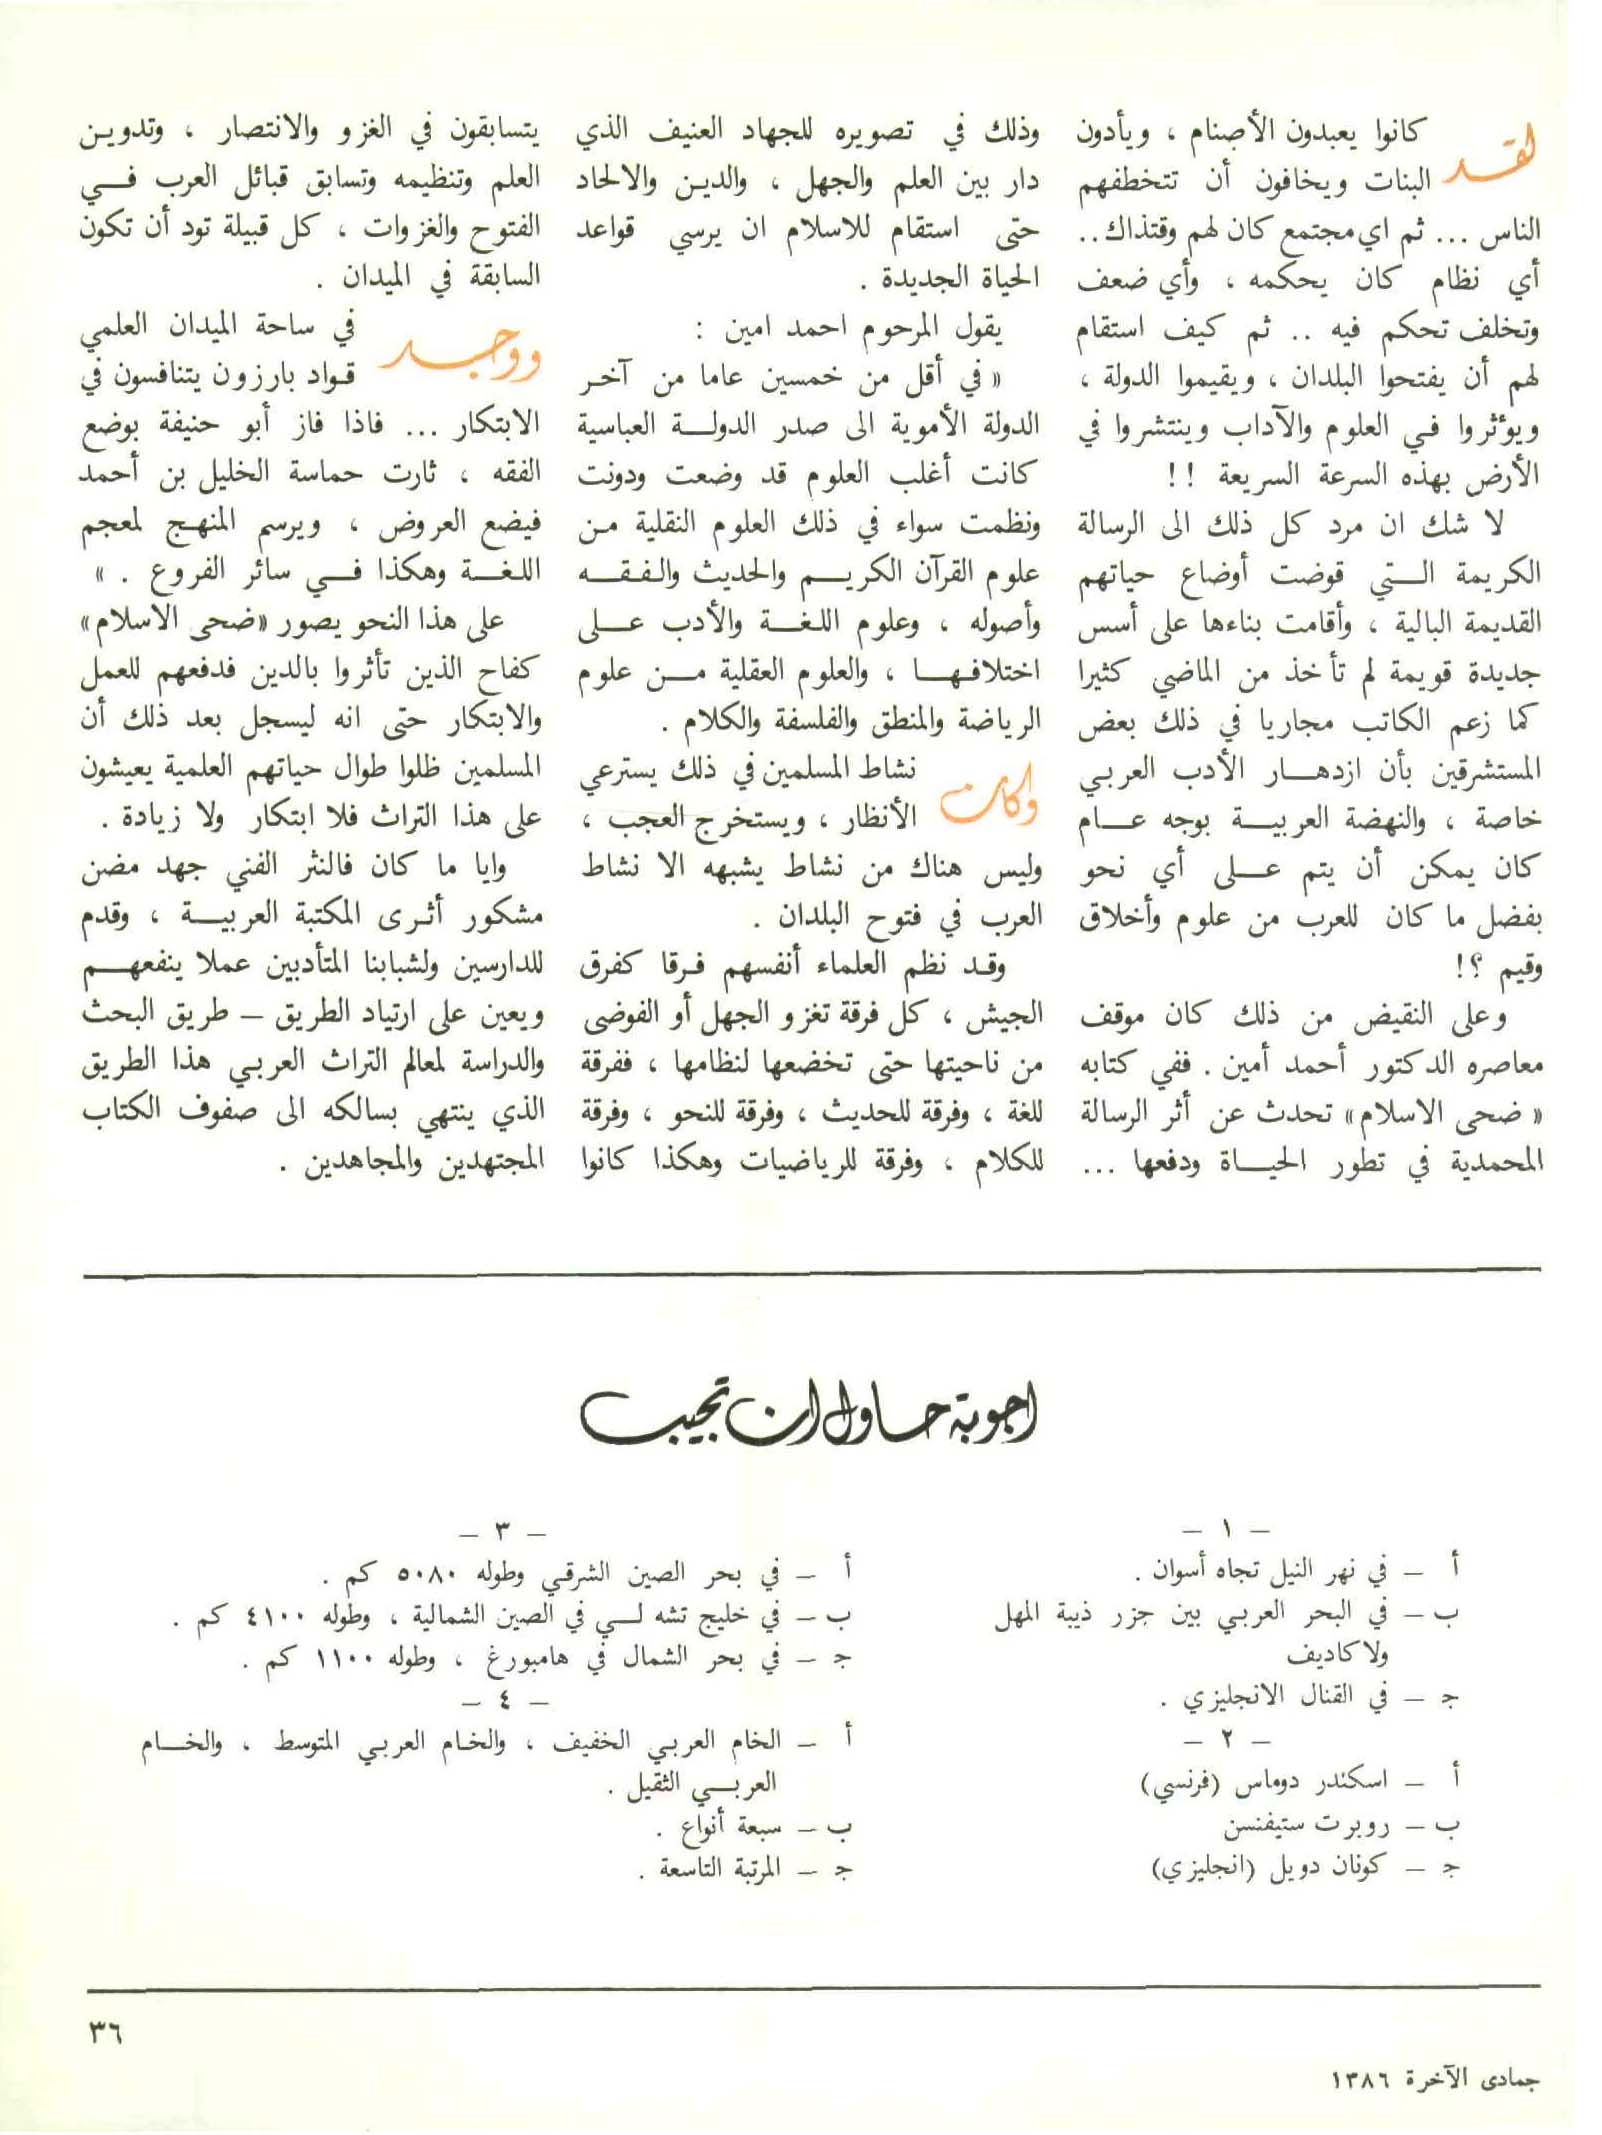 لقد كانوا يعبدون الأصنام ، ويأدون
البنات ويخافون أن تتخطفهم
الناس ... ثم اي مجتمع كان لهم وقتذاك ..
أي نظام كان يحكمه ، وأي ضعف
وتخلف تحكم فيه .. ثم كيف استقام
لهم أن يفتحوا البلدان ، ويقيموا الدولة ،
ويوٴثروا في العلوم والآداب وينتشروا في
الأرض بهذه السرعة السريعة !!
لا شك ان مرد كل ذلك الى الرسالة
الكريمة التي قوضت أوضاع حياتهم
القديمة البالية ، وأقامت بناءها على أسس
جديدة قويمة لم تأخذ من الماضي كثيرا
كما زعم الكاتب مجاريا في ذلك بعض
المستشرقين بأن ازدهار الأدب العربي
خاصة ، والنهضة العربية بوجه عام
كان يمكن أن يتم على أي نحو
بفضل ما كان للعرب من علوم وأخلاق
وقيم ؟!
وعلى النقيض من ذلك كان موقف
معاصره الدكتور أحمد أمين . ففي كتابه
« ضحى الاسلام» تحدث عن أثر الرسالة
المحمدية في تطور الحياة ودفعها ...
وذلك في تصويره للجهاد العنيف الذي
دار بين العلم والجهل ، والدين والالحاد
حتى استقام للاسلام ان يرسي قواعد
الحياة الجديدة .
يقول المرحوم احمد امين :
« في أقل من خمسين عاما من آخر
الدولة الأموية الى صدر الدولة العباسية
كانت أغلب العلوم قد وضعت ودونت
ونظمت سواء في ذلك العلوم النقلية من
علوم القرآن الكريم والحديث والفقه
وأصوله ، وعلوم اللغة والأدب على
اختلافها ، والعلوم العقلية من علوم
الرياضة والمنطق والفلسفة والكلام .
وكان نشاط المسلمين في ذلك يسترعي
الأنظار ، ويستخرج العجب ،
وليس هناك من نشاط يشبهه الا نشاط
العرب في فتوح البلدان .
وقد نظم العلماء أنفسهم فرقا كفرق
الجيش ، كل فرقة تغزو الجهل أو الفوضى
من ناحيتها حتى تخضعها لنظامها ، ففرقة
للغة ، وفرقة للحديث ، وفرقة للنحو ، وفرقة
للكلام ، وفرقة للرياضيات وهكذا كانوا
يتسابقون في الغزو والانتصار ، وتدوين
العلم وتنظيمه وتسابق قبائل العرب في
الفتوح والغزوات ، كل قبيلة تود أن تكون
السابقة في الميدان .
ووجد في ساحة الميدان العلمي
قواد بارزون يتنافسون في
الابتكار ... فاذا فاز أبو حنيفة بوضع
الفقه ، ثارت حماسة الخليل بن أحمد
فيضع العروض ، ويرسم المنهج لمعجم
اللغة وهكذا في سائر الفروع . »
على هذا النحو يصور «ضحى الاسلام»
كفاح الذين تأثروا بالدين فدفعهم للعمل
والابتكار حتى انه ليسجل بعد ذلك أن
المسلمين ظلوا طوال حياتهم العلمية يعيشون
على هذا التراث فلا ابتكار ولا زيادة .
وايا ما كان فالنثر الفني جهد مضن
مشكور أثرى المكتبة العربية ، وقدم
للدارسين ولشبابنا المتأدبين عملا ينفعهم
ويعين على ارتياد الطريق – طريق البحث
والدراسة لمعالم التراث العربي هذا الطريق
الذي ينتهي بسالكه الى صفوف الكتاب
المجتهدين والمجاهدين .
اجوبة حاول ان تجيب
– ١ –
أ – في نهر النيل تجاه أسوان .
ب – في البحر العربي بين جزر ذيبة المهل
ولاكاديف
ج – في القنال الانجليزي .
– ٢ –
أ – اسكندر دوماس (فرنسي)
ب – روبرت ستيفنسن
ج – كونان دويل (انجليزي)
– ٣ –
أ – في بحر الصين الشرقي وطوله ٥٠٨٠ كم .
ب – في خليج تشه لي في الصين الشمالية ، وطوله ٤١٠٠ كم .
ج – في بحر الشمال في هامبورغ ، وطوله ١١٠٠ كم .
– ٤ –
أ – الخام العربي الخفيف ، والخام العربي المتوسط ، والخام
العربي الثقيل .
ب – سبعة أنواع .
ج – المرتبة التاسعة .
٣٦
جمادى الآخرة ١٣٨٦